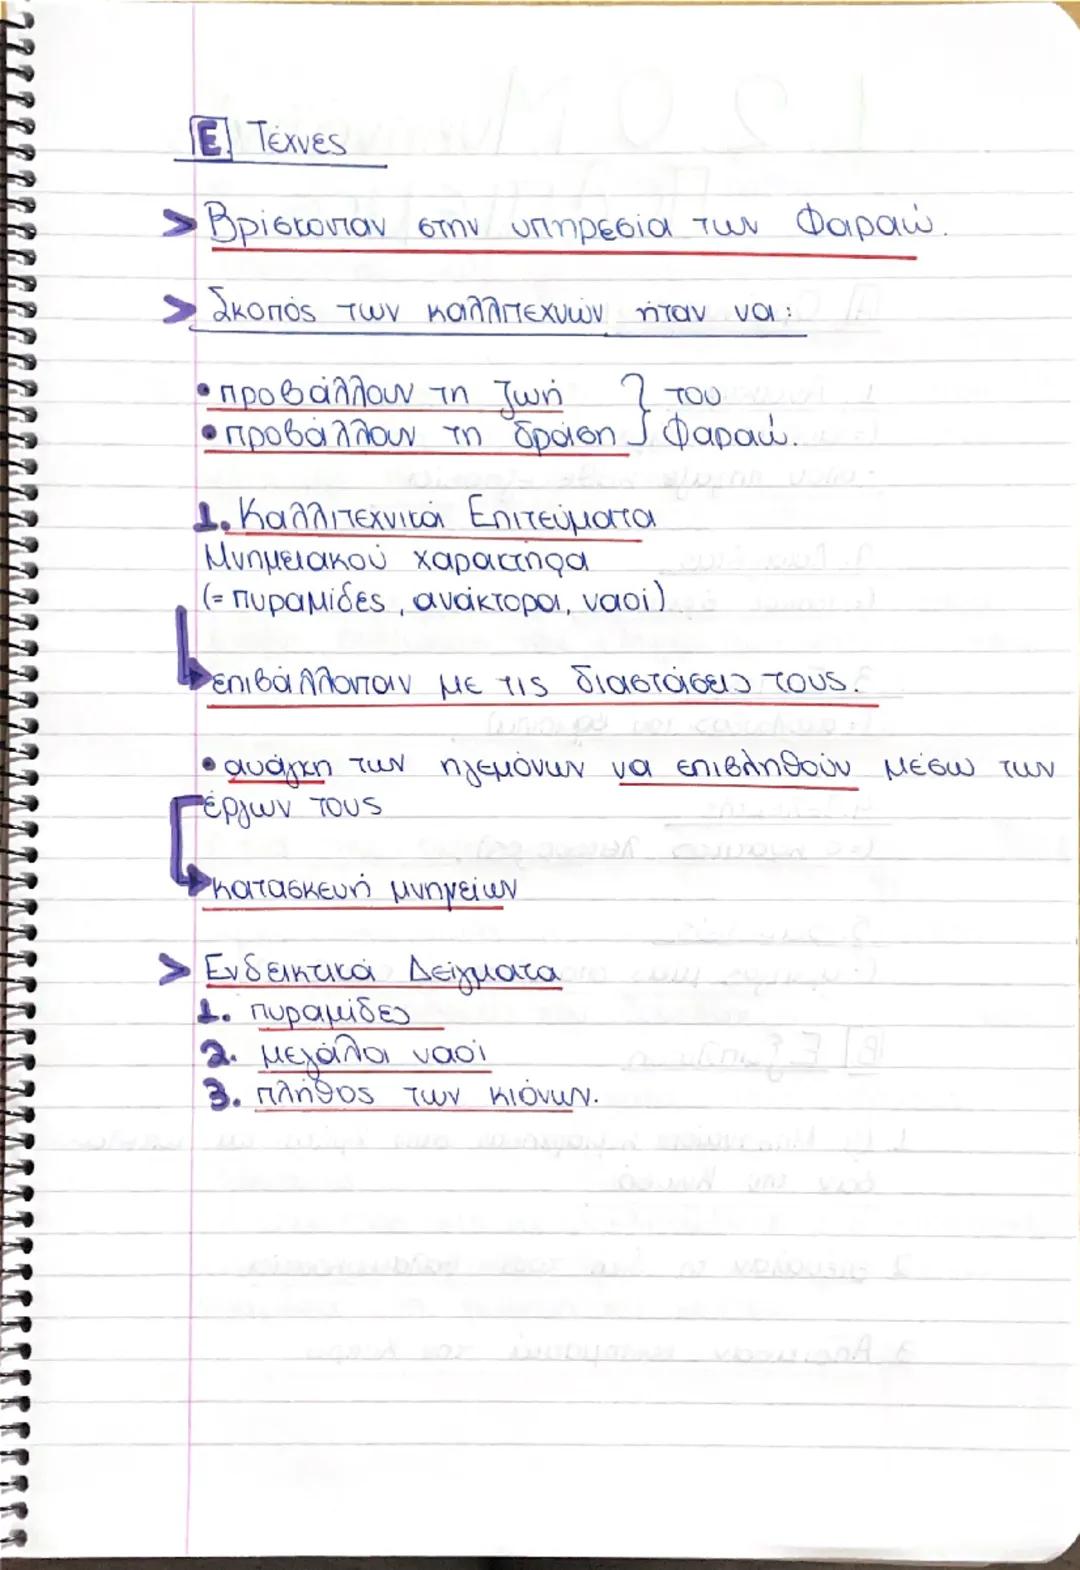 Ε. Τέχνες
> Βρίσκονταν στην υπηρεσία των Φαραώ.
> Σκοπός των καλλιτεχνών ήταν να:
• προβάλλουν τη ζωή } του
• προβάλλουν τη δράση } Φαραώ.
1. Καλλιτεχνικά Επιτεύματα
Μνημειακού χαρακτήρα
(= πυραμίδες, ανάκτοροι, ναοί)
επιβάλλονταν με τις διαστάσεις τους.
• ανάγκη των ηγεμόνων να επιβληθούν μέσω των
έργων τους
κατασκευή μνημείων
> Ενδεικτικά Δείγματα
1. πυραμίδες
2. μεγάλοι ναοί
3. πλήθος των κιόνων.